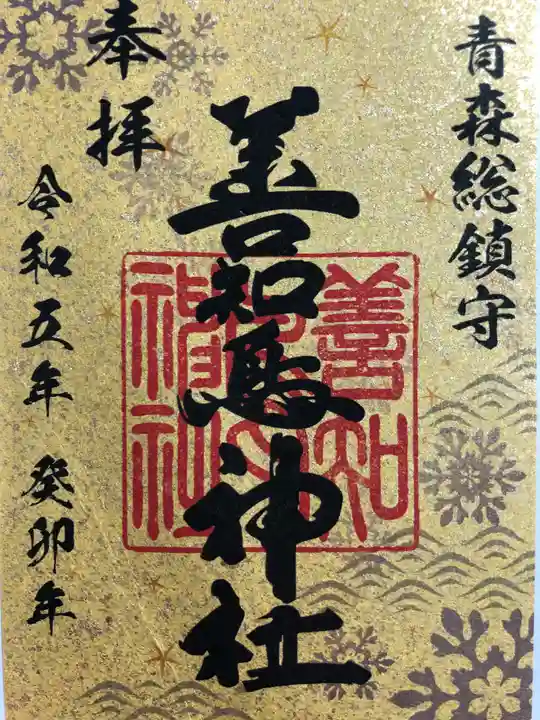 青森総鎮守
善知鳥神社
奉拝
令和五年 癸卯年
善知
神社